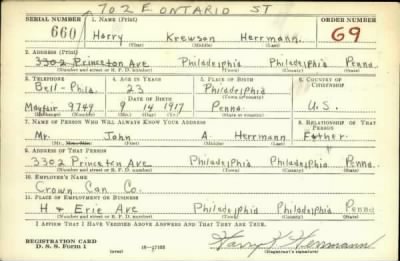 702 E ONTARIO ST
SERIAL NUMBER 1. NAME (Print) ORDER NUMBER
660 Harry Krewson Herrmann 69
(First) (Middle) (Last)
2. ADDRESS (Print)
3302 Princeton Ave Philadelphia Philadelphia Penna.
(Number and street or R. F. D. number) (Town) (County) (State)
3. TELEPHONE 4. AGE IN YEARS 5. PLACE OF BIRTH 6. COUNTRY OF CITIZENSHIP
Bell - Phila. 23 Philadelphia
DATE OF BIRTH (Town or county)
Mayfair 9749 9 14 1917 Penna. U.S.
(Exchange) (Number) (Mo.) (Day) (Yr.) (State or country)
7. NAME OF PERSON WHO WILL ALWAYS KNOW YOUR ADDRESS 8. RELATIONSHIP OF THAT PERSON
Mr. John A. Herrmann Father
(Mr., Mrs., Miss) (First) (Middle) (Last)
9. ADDRESS OF THAT PERSON
3302 Princeton Ave Philadelphia Philadelphia Penna.
(Number and street or R. F. D. number) (Town) (County) (State)
10. EMPLOYER'S NAME
Crown Can Co.
11. PLACE OF EMPLOYMENT OR BUSINESS
H & Erie Ave Philadelphia Philadelphia Penna
(Number and street or R. F. D. number) (Town) (County) (State)
I AFFIRM THAT I HAVE VERIFIED ABOVE ANSWERS AND THAT THEY ARE TRUE.
REGISTRATION CARD
D. S. S. Form 1 (over) 16—17105 Harry K Herrmann
(Registrant's signature)